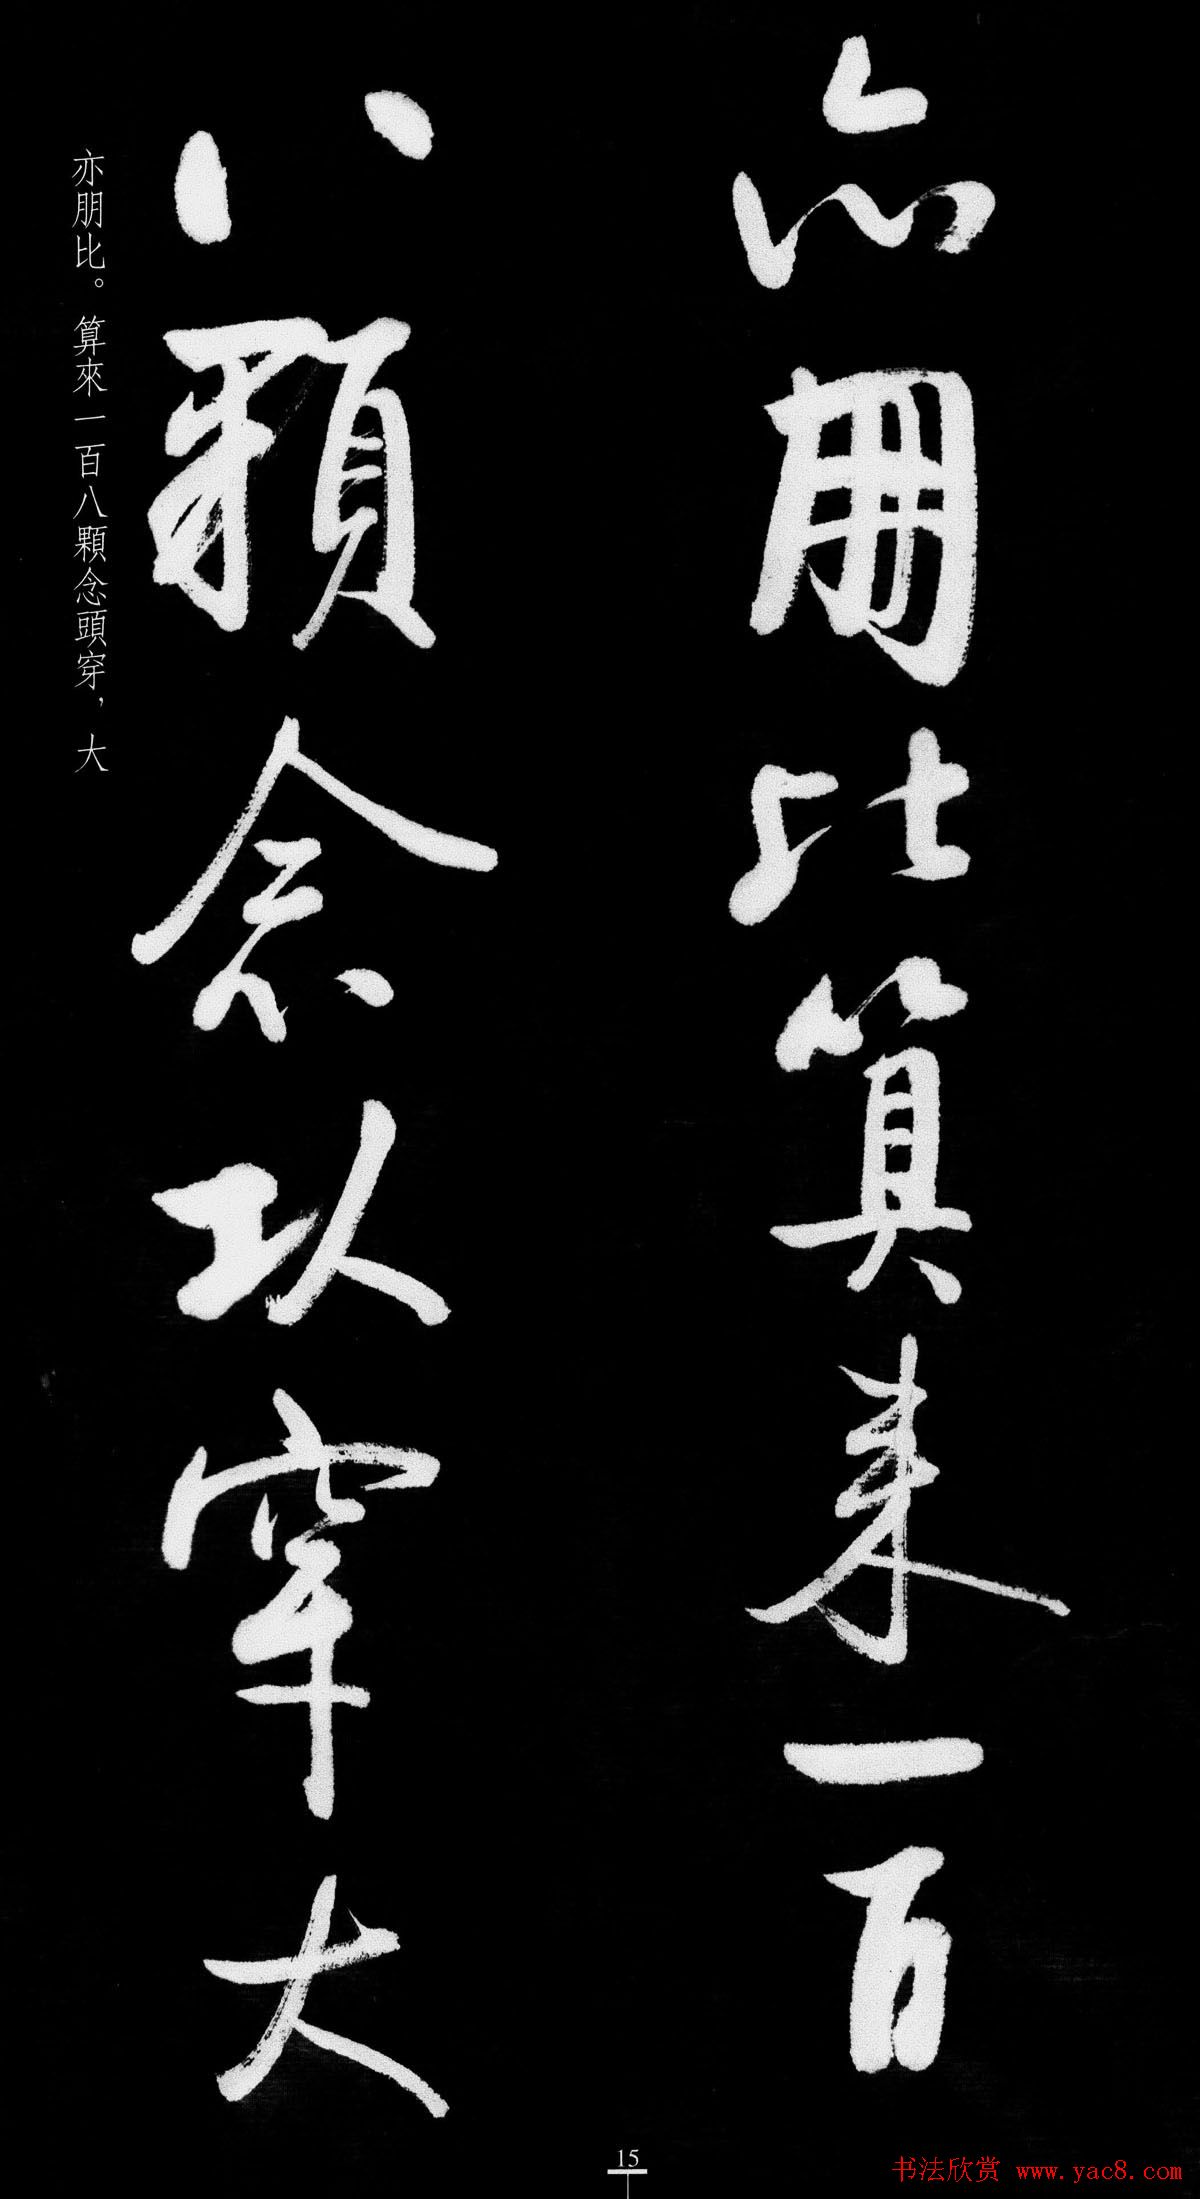 亦朋比算來一百
八顆念頭穿大
亦朋比。算來一百八顆念頭穿，大
15
书法欣赏 www.yac8.com